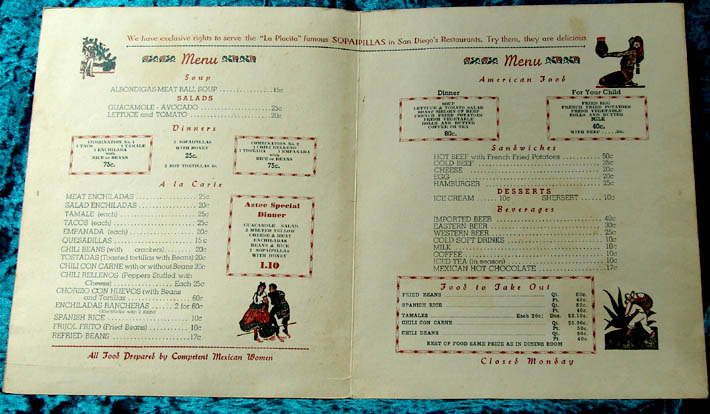 We have exclusive rights to serve the "La Placita" famous SOPAIPILLAS in San Diego's Restaurants. Try them, they are delicious
Menu
Soup
ALBONDIGAS-MEAT BALL SOUP 15c
SALADS
GUACAMOLE - AVOCADO 25c
LETTUCE and TOMATO 20c
Dinners
COMBINATION No. 1
1 TACO 1 TAMALE
1 ENCHILADA
with
RICE or BEANS
75c.
2 SOPAIPILLAS
WITH HONEY
25c.
2 HOT TORTILLAS 5c.
COMBINATION No. 2
1 CHILE RELLENOS
1 TOSTADA 1 EMPANADA
with
RICE or BEANS
75c.
A la Carte
MEAT ENCHILADAS 25c
SALAD ENCHILADAS 20c
TAMALE (each) 25c
TACOS (each) 25c
EMPANADA (each) 20c
QUESADILLAS 15c
CHILI BEANS (with crackers) 20c
TOSTADAS (Toasted tortillas with Beans) 20c
CHILI CON CARNE with or without Beans 30c
CHILI RELLENOS (Peppers Stuffed with
Cheese) Each 25c
CHORIZO CON HUEVOS (with Beans
and Tortillas 60c
ENCHILADAS RANCHERAS 2 for 60c
SPANISH RICE 10c
FRIJOL FRITO (Fried Beans) 10c
REFRIED BEANS 17c
Aztec Special
Dinner
GUACAMOLE SALAD
2 MELTED YELLOW
CHEESE & MEAT
ENCHILADAS
BEANS & RICE
2 SOPAIPILLAS
WITH HONEY
1.10
All Food Prepared by Competent Mexican Women
Menu
American Food
Dinner
SOUP
LETTUCE & TOMATO SALAD
ROAST SIRLOIN OF BEEF
FRENCH FRIED POTATOES
FRESH VEGETABLE
ROLLS AND BUTTER
COFFEE OR TEA
80c.
For Your Child
FRIED EGG
FRENCH FRIED POTATOES
FRESH VEGETABLE
ROLLS AND BUTTER
MILK
40c.
WITH BEEF
Sandwiches
HOT BEEF with French Fried Potatoes 50c
COLD BEEF 35c
CHEESE 20c
EGG 20c
HAMBURGER 25c
DESSERTS
ICE CREAM 10c SHERBERT 10c
Beverages
IMPORTED BEER 40c
EASTERN BEER 30c
WESTERN BEER 25c
COLD SOFT DRINKS 10c
MILK 10c
COFFEE 10c
ICED TEA (in season) 10c
MEXICAN HOT CHOCOLATE 17c
Food to Take Out
FRIED BEANS Qt.
Pt.
SPANISH RICE Qt.
Pt.
TAMALES Each 20c; Doz.
CHILI CON CARNE Qt.
Pt.
CHILI BEANS Qt.
Pt.
REST OF FOOD SAME PRIZE AS IN DINING ROOM
Closed Monday